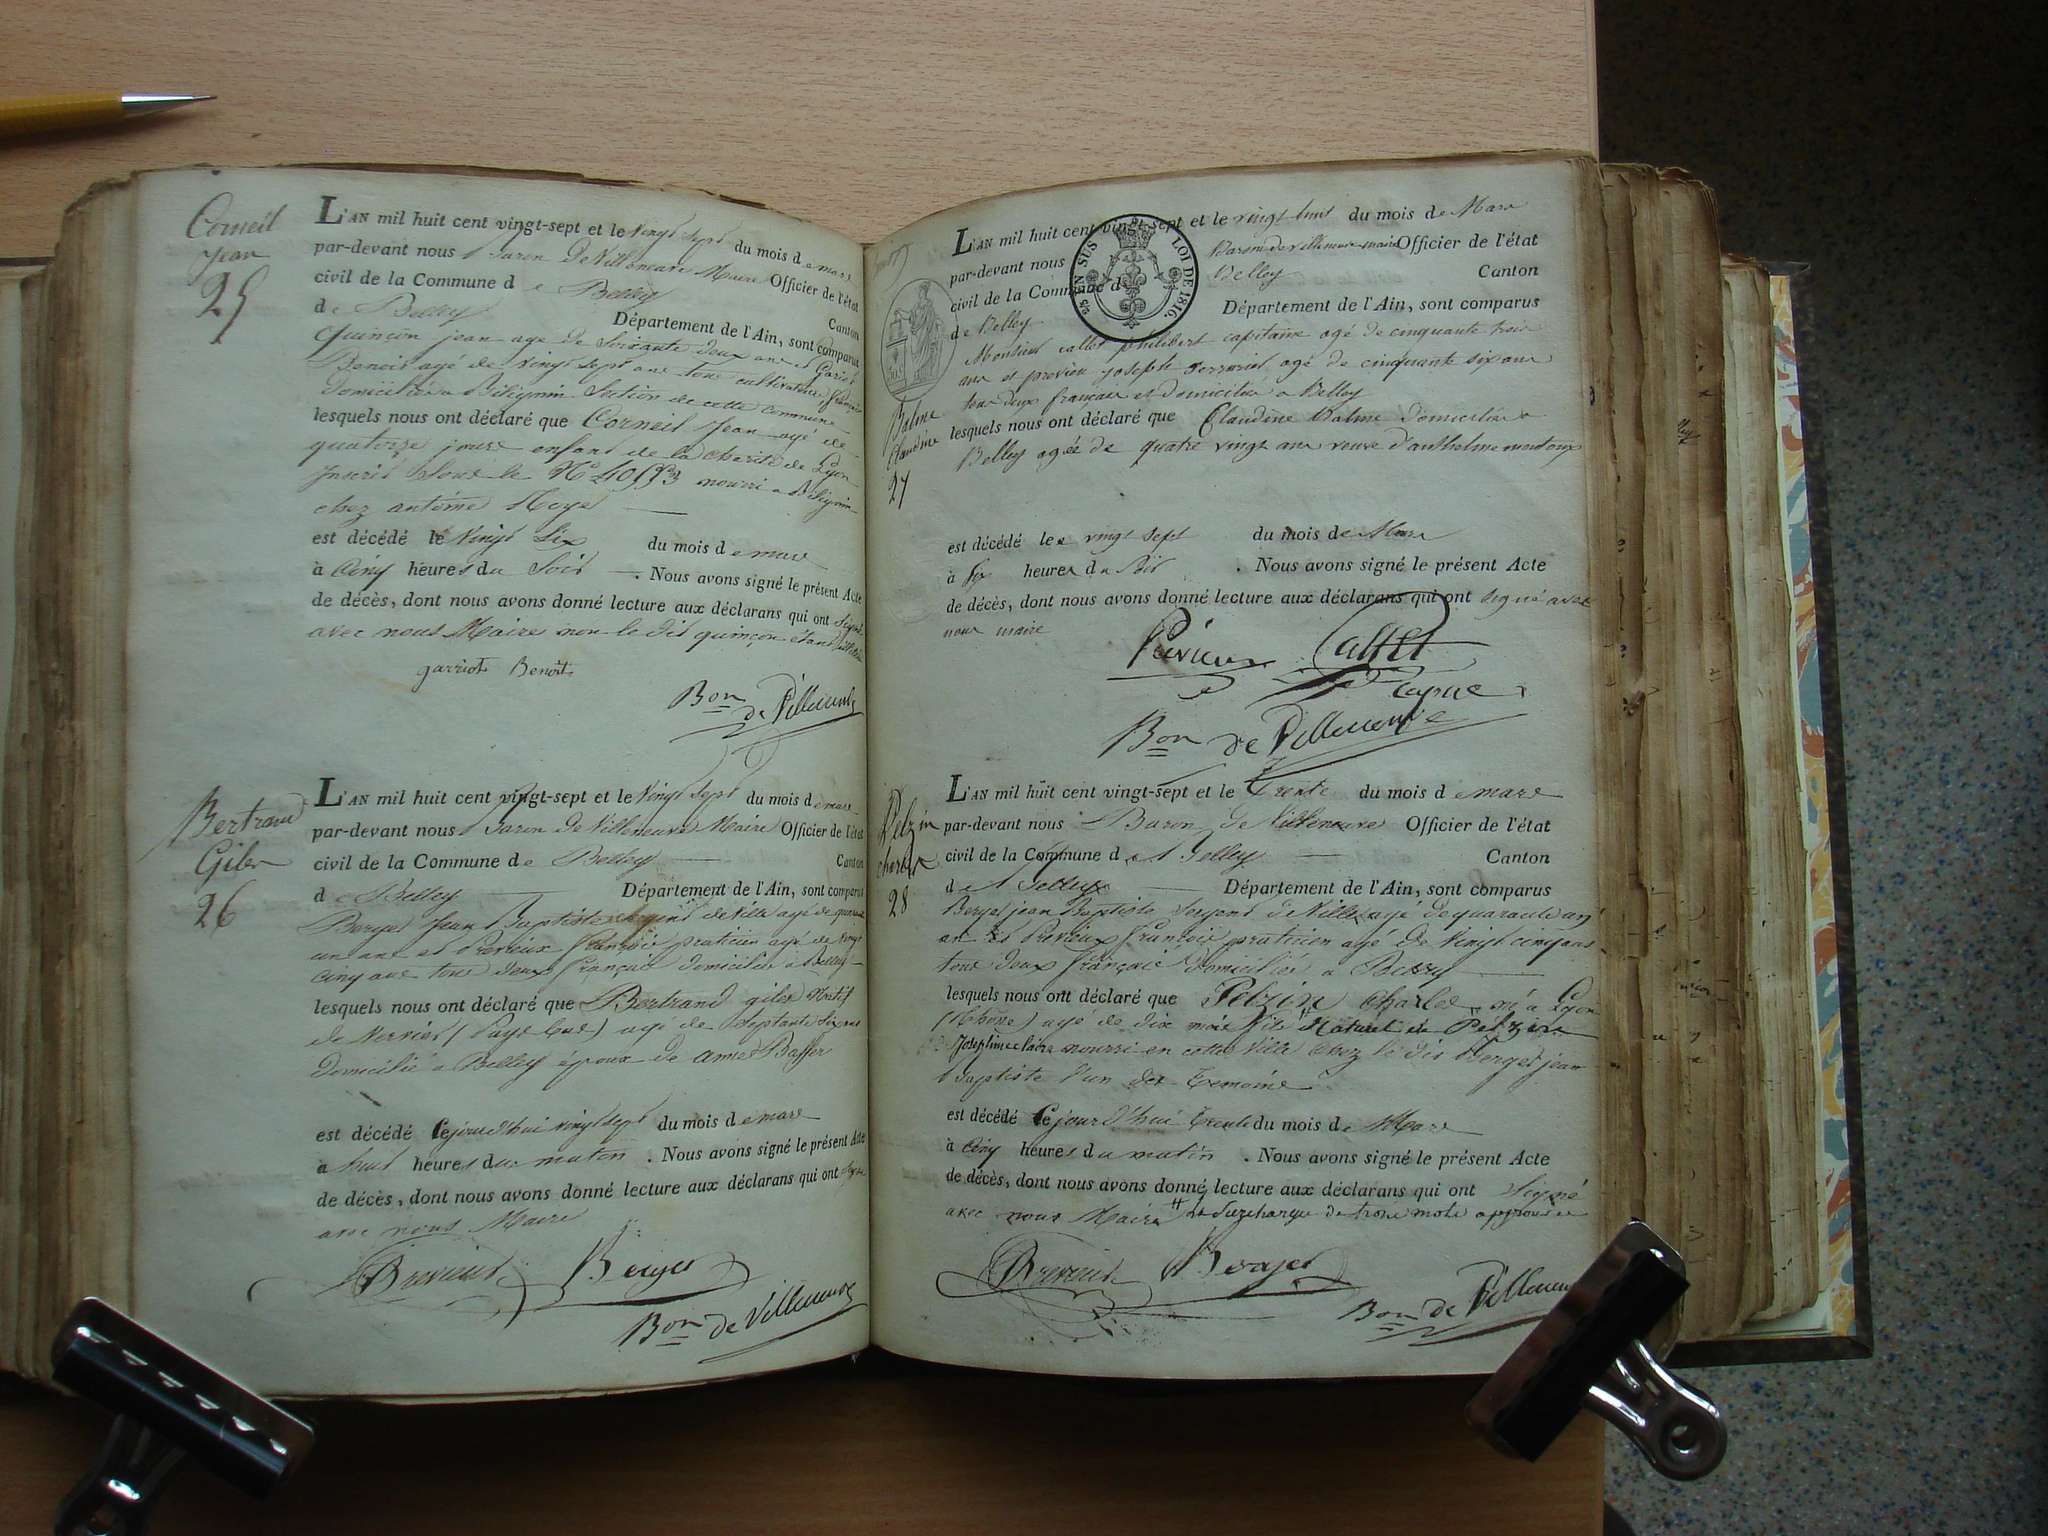 Corneil
Jean
25
L'AN mil huit cent vingt-sept et le Vingt Sept du mois de mars
par-devant nous Baron De Villeneuve Maire Officier de l'état
civil de la Commune de Belley Canton
de Belley Département de l'Ain, sont comparus
Quinçon jean age de Soixante deux ans et Gariot
Benoit agé de Vingt Sept ans tous cultivateurs, français
Domiciliés a Section de cette commune
lesquels nous ont déclaré que Corneil Jean agé de
quatorze jours enfant de la charité de Lyon
Inscrit Sous le N° nourri a
chez antoine
est décédé le Vingt Six du mois de mars
à Cinq heures du Soir . Nous avons signé le présent Acte
de décès, dont nous avons donné lecture aux déclarans qui ont Signé
avec nous Maire non le dit quinçon étant
garriot Benoit
Bon de Villeneuve
Bertrand
Giles
26
L'AN mil huit cent vingt-sept et le Vingt Sept du mois de mars
par-devant nous Baron De Villeneuve Maire Officier de l'état
civil de la Commune de Belley Canton
de Belley Département de l'Ain, sont comparus
Berger Jean Baptiste Sergent de Ville agé de quarante
un ans et Prévieux François praticien agé de Vingt
cinq ans tous deux français domiciliés à Belley
lesquels nous ont déclaré que Bertrand giles Natif
de Vervier (Pays bas) agé de Septante Six ans
Domicilié a Belley époux de anne
est décédé Cejourd'hui vingt sept du mois de mars
à huit heures du matin . Nous avons signé le présent Acte
de décès, dont nous avons donné lecture aux déclarans qui ont Signé
avec nous Maire
Prévieux Berger
Bon de Villeneuve
EN SUS LOI DE 1816.
L'AN mil huit cent vingt-sept et le vingt huit du mois de Mars
par-devant nous Baron de Villeneuve maire Officier de l'état
civil de la Commune de Belley Canton
de Belley Département de l'Ain, sont comparus
Monsieur callet philibert capitaine agé de cinquante trois
ans et previeu joseph agé de cinquante six ans
tous deux français et domiciliés a Belley
Balme
Claudine
27
lesquels nous ont déclaré que Claudine Balme domiciliée a
Belley agée de quatre vingt ans veuve d'anthelme
est décédée le vingt sept du mois de Mars
à Six heures du Soir . Nous avons signé le présent Acte
de décès, dont nous avons donné lecture aux déclarans qui ont signé avec
nous maire
Prévieux Callet
Bon de Villeneuve
Pelzin
charles
28
L'AN mil huit cent vingt-sept et le Trente du mois de mars
par-devant nous Baron de Villeneuve Officier de l'état
civil de la Commune de Belley Canton
de Belley Département de l'Ain, sont comparus
Berger jean Baptiste Sergent de Ville agé de quarante un
ans et Prévieux françois praticien agé de Vingt cinq ans
tous deux français domiciliés a Belley
lesquels nous ont déclaré que Pelzin Charles né a Lyon
(Rhône) agé de dix mois fils Naturel de Pelzin
Josephine claire nourri en cette Ville chez le dit Berger jean
Baptiste l'un des Temoins
est décédé Cejourd'hui Trente du mois de Mars
à Cinq heures du matin . Nous avons signé le présent Acte
de décès, dont nous avons donné lecture aux déclarans qui ont Signé
avec nous Maire la Surcharge de trois mots approuvée
Prévieux Berger
Bon de Villeneuve